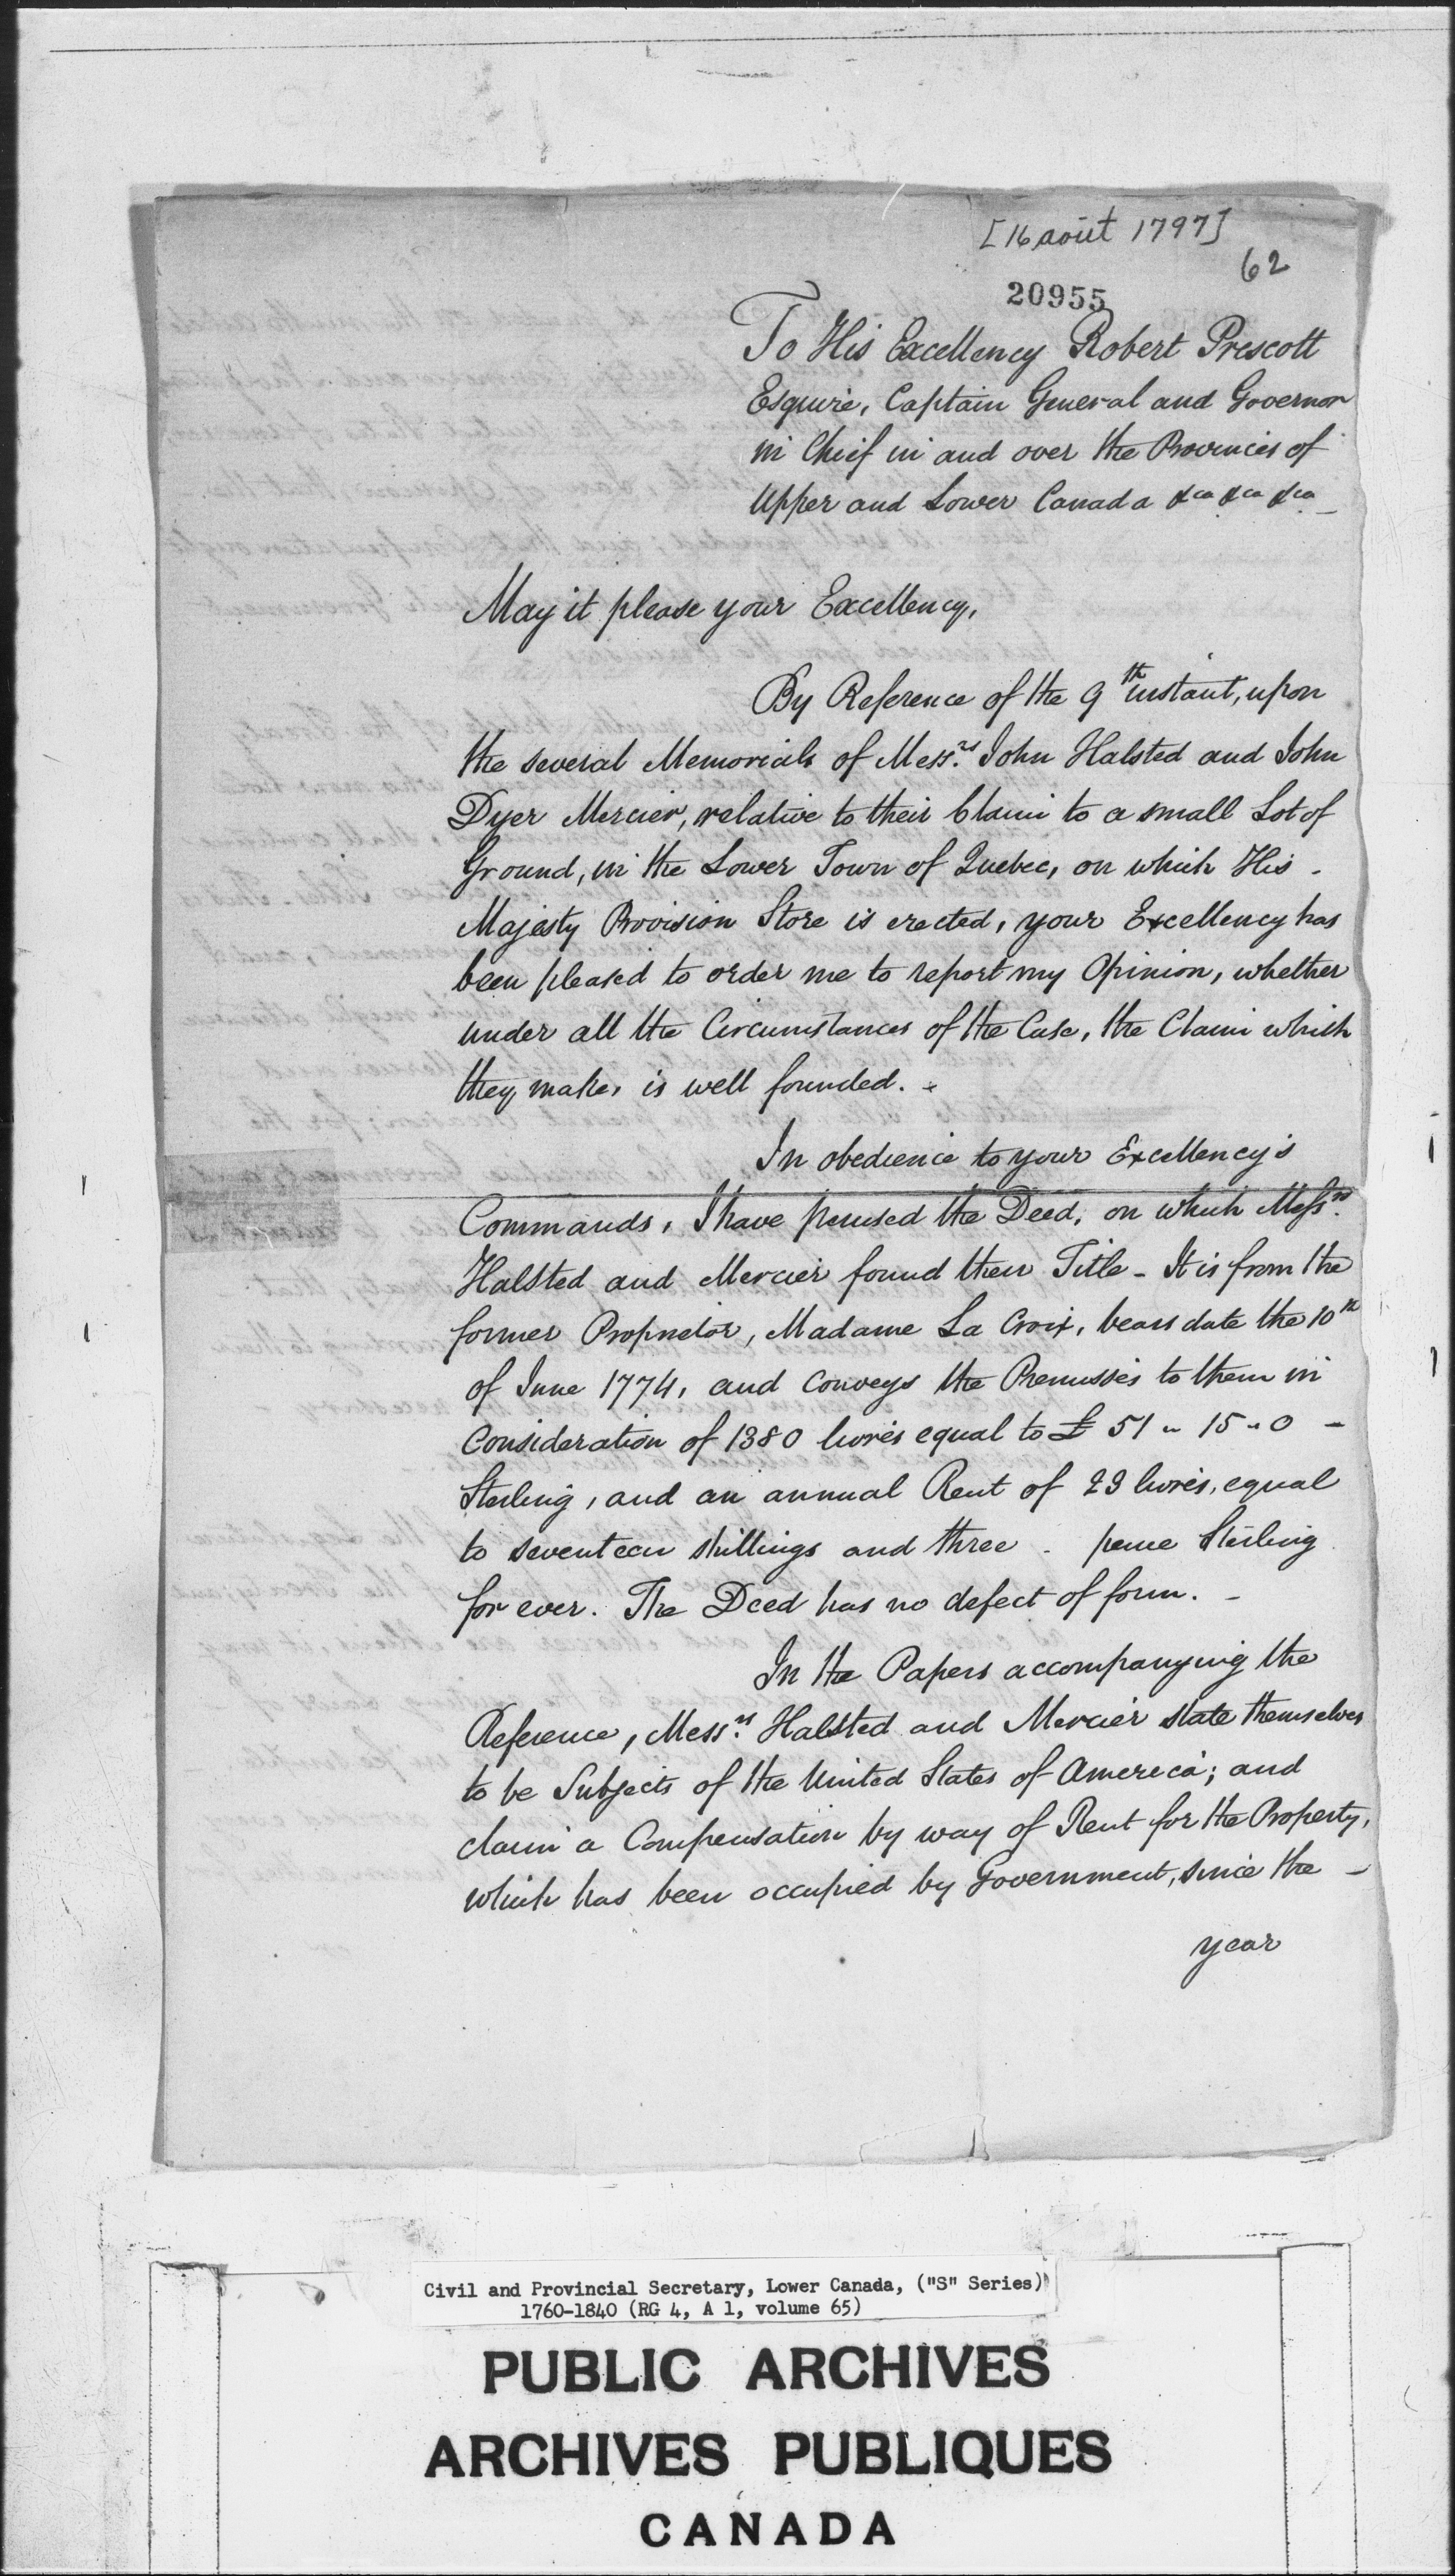 [16 août 1797]
62
20955
To His Excellency Robert Prescott
Esquire, Captain General and Governor
in Chief in and over the Provinces of
Upper and Lower Canada &ca &ca &ca
May it please your Excellency,
By Reference of the 9th instant, upon
the several Memorials of Messrs. John Halsted and John
Dyer Mercier, relative to their Claim to a small Lot of
Ground, in the Lower Town of Quebec, on which His -
Majesty Provision Store is erected, your Excellency has
been pleased to order me to report my Opinion, whether
under all the Circumstances of the Case, the Claim which
they make, is well founded. -
In obedience to your Excellency's
Commands, I have perused the Deed, on which Messrs.
Halsted and Mercier found their Title - It is from the
former Proprietor, Madame La Croix, bears date the 10th
of June 1774, and conveys the Premisses to them in
consideration of 1380 livres equal to £ 51 " 15 " 0 -
Sterling, and an annual Rent of 23 livres, equal
to seventeen shillings and three - pence Sterling
for ever. The Deed has no defect of form. -
In the Papers accompanying the
Reference, Messrs. Halsted and Mercier state themselves
to be Subjects of the United States of America; and
claim a Compensation by way of Rent for the Property,
which has been occupied by Government, since the -
year
Civil and Provincial Secretary, Lower Canada, ("S" Series)
1760-1840 (RG 4, A 1, volume 65)
PUBLIC ARCHIVES
ARCHIVES PUBLIQUES
CANADA